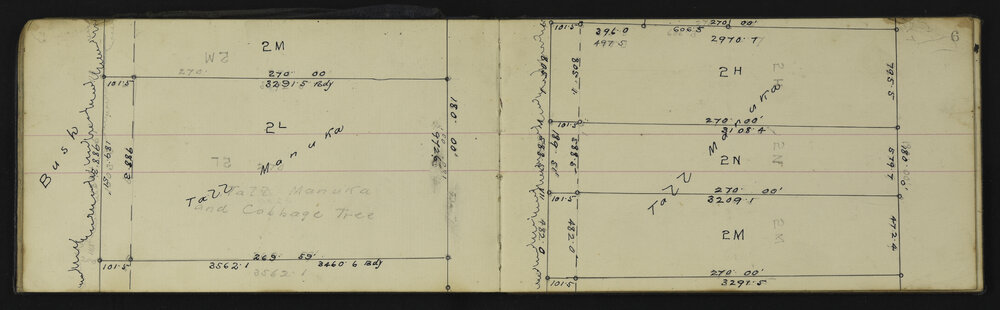 2M
270° 00'
101.5
3291.5 Bdy
2L
Bush
988.3
180° 00'
972.6
Tall Manuka
Tall Manuka
and Cabbage Tree
269° 59'
101.5
3562.1
3460.6 Bdy
3562.1
6
270° 00'
296.0
606.5
497.5
2970.7
2H
795.5
Manuka
101.5
270° 00'
3108.4
588.5
2N
579.7
Tall
270° 00'
101.5
3209.1
482.0
482.0
2M
472.4
270° 00'
101.5
3291.5